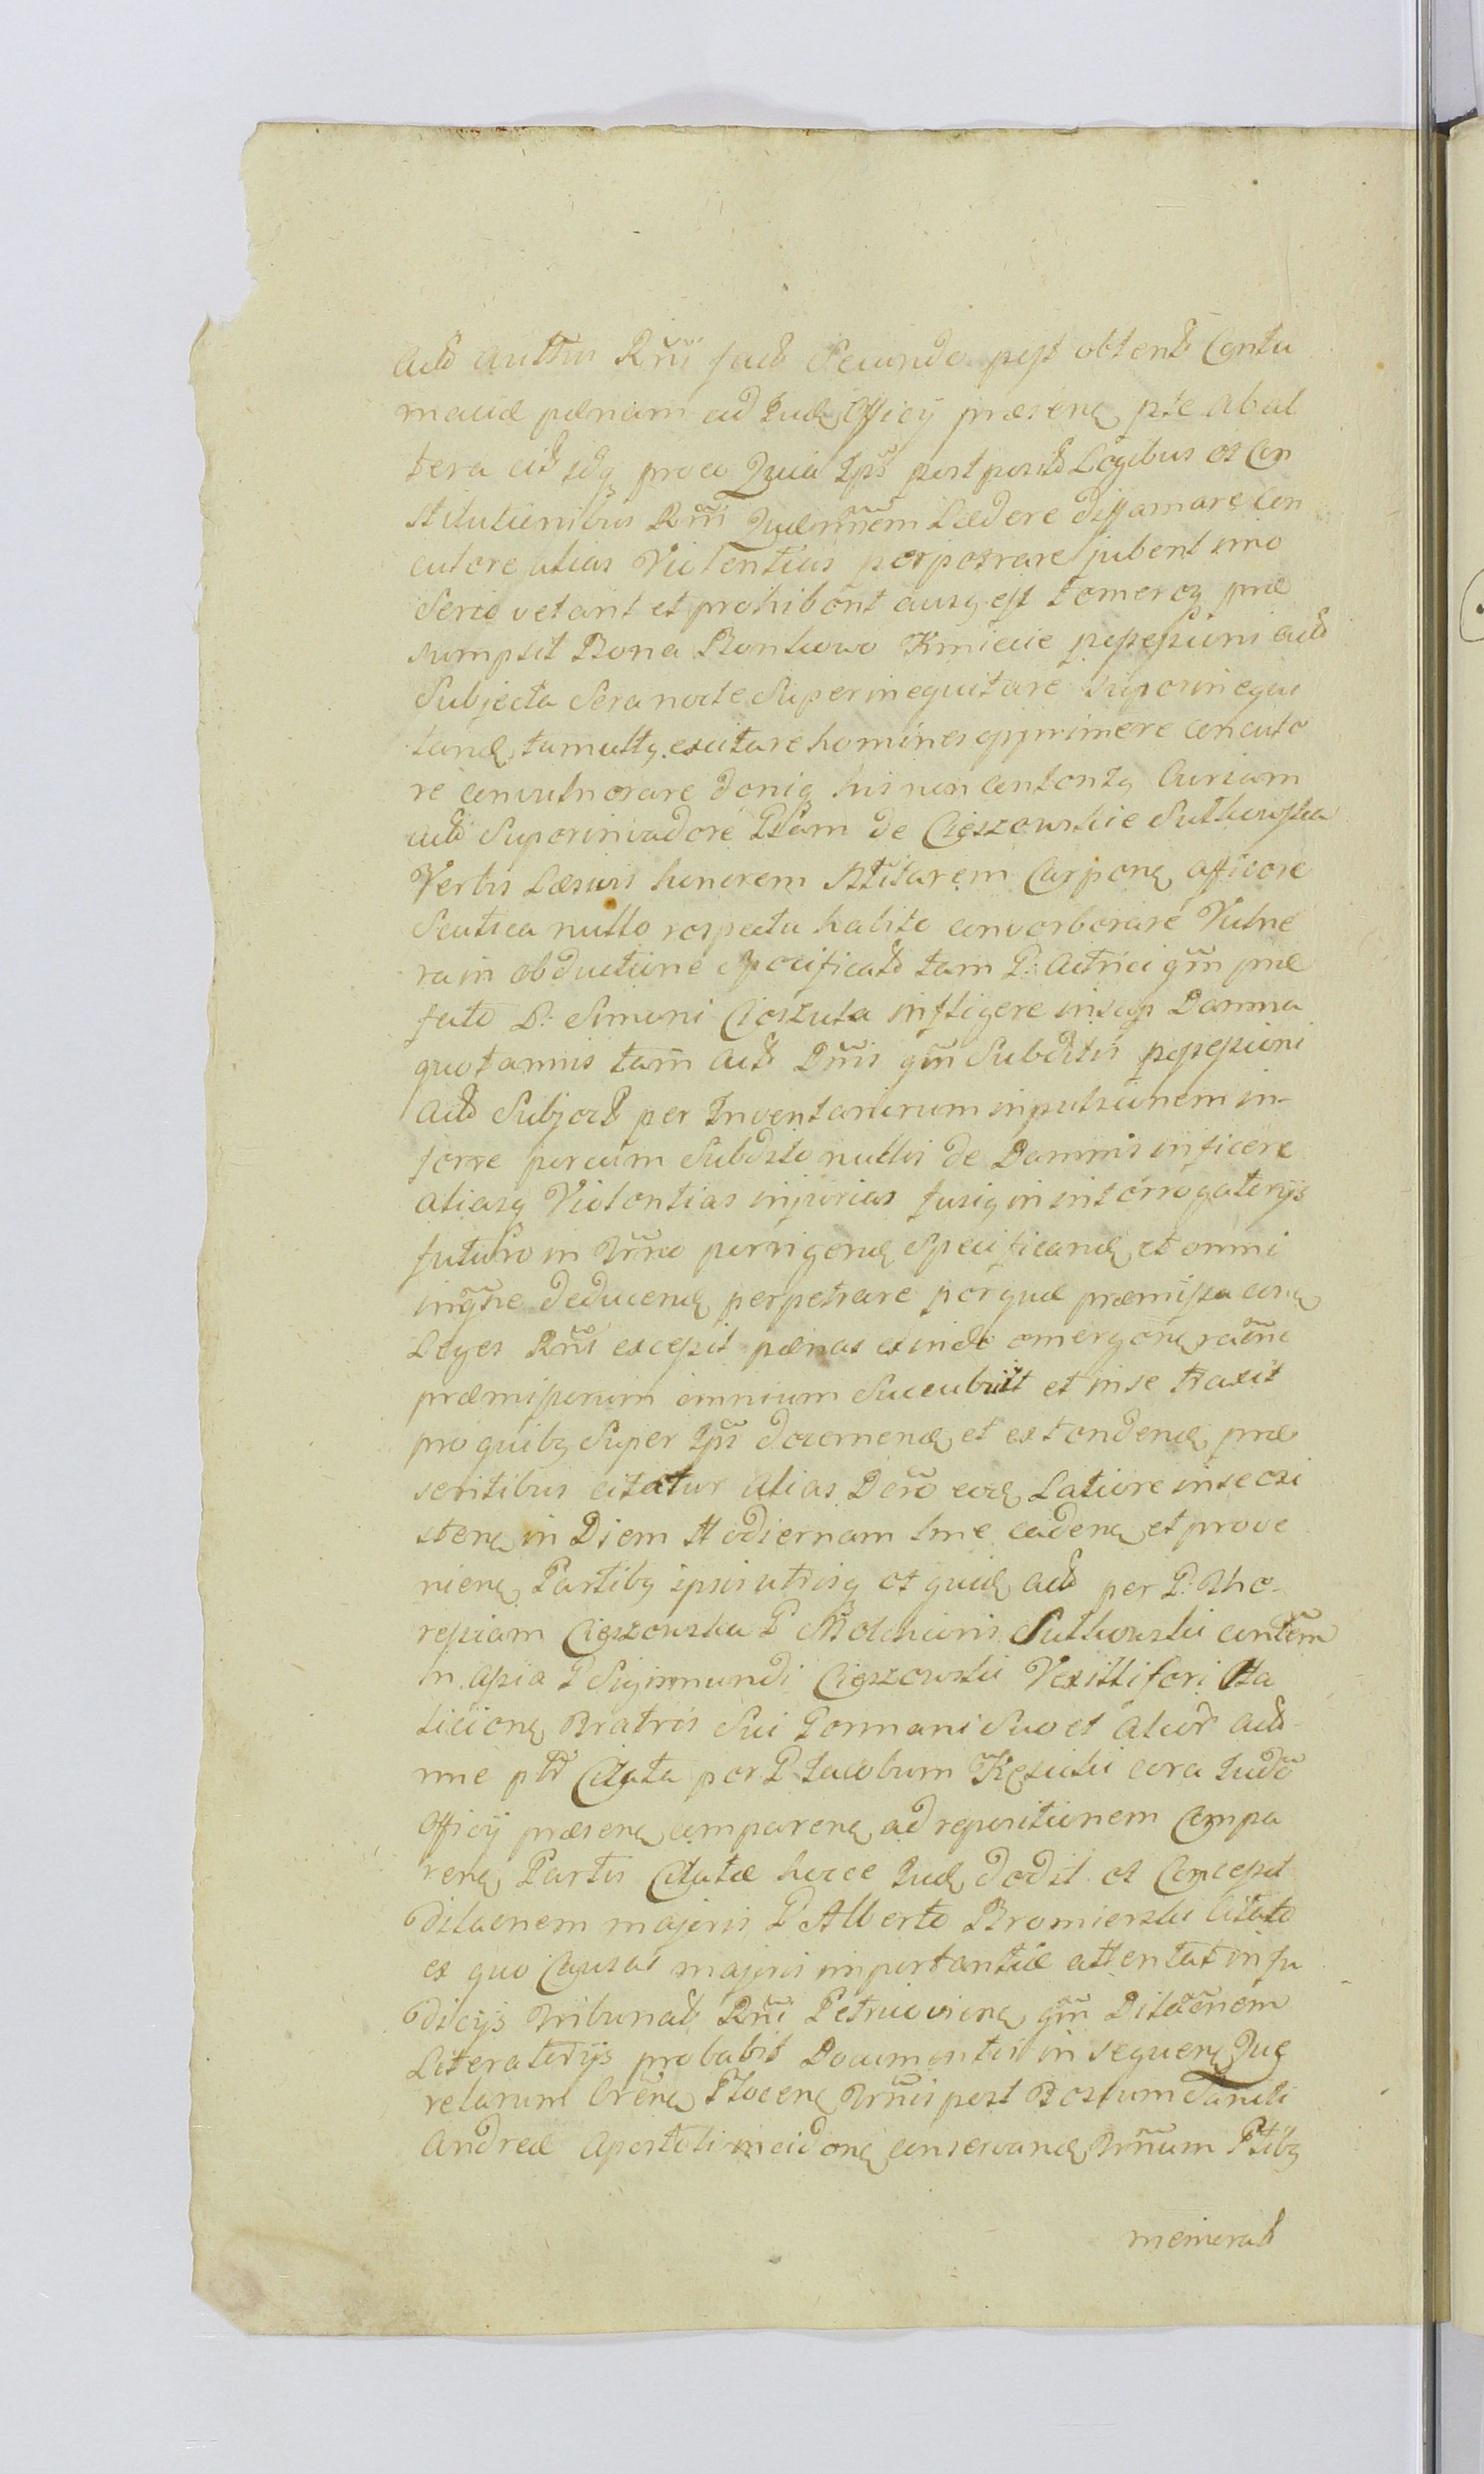 Actô authûs Rñi fact Secundo post obtent Contu
maciæ pænam ad Judꝫ Officij præsenꝫ pte ab al
tera cit idqꝫ pro eo Quia Ips post positt Legibus et Con
stitutionibus Rñi Quæ nñem Lædere diffamare con
cutere alias Violentias perpetrare jubent imo
Serio vetant et prohibent ausqꝫ est temereqꝫ præ
sumpsit Bona Bonkowo Kmiecie possessioni actô
Subjecta Sera nocte Superinequitare Superinequi
tanꝫ tumultqꝫ excitare homines opprimere concute
re convulnerare deniqꝫ his non contentqꝫ Curiam
actô Superinvadere Psam de Cieszowskie Sutkowska
Verbis Læsivis honorem Nttitarem Carpenꝫ afficere
Scutica nullo respectu habito converberare Vulne
ra in obductione Specificatô tam P: Actrici qm præ
fato P: Simoni Cioszuta infligere insup Damna
quotannis tam Act Dnis qm Subditis possessioni
Actô Subject per Inventariorum inpulsionem in-
ferre porcum Subdito nullis de Damnis inficere
aliasq Violentias injurias fusiq in interrogatorijs
futuro in Trño porrigenꝫ Specificanꝫ et omni
inqñe deducenꝫ perpetrare perquæ præmissa conꝫ
Leges Rñi excepit pænas exinde emergenꝫ raone
præmissorum omnium Succubuit et in se traxit
pro quibqꝫ Super Ips decernenꝫ et extendenꝫ præ
sentibus citatur alias Decro eodꝫ Latiore in se exi
stenꝫ in Diem Hodiernam tme cadenꝫ et prove
nienꝫ Partibqꝫ ipsis utrisqꝫ et quidꝫ Actô per P: The-
resiam Cieszowska P Melchioris Sutkowski contem
in Assia P Sigismundi Cieszowski Vexilliferi Ha
licienꝫ Fratris Sui Germani Suo et Alior Actô
nne ptt Citata per P Jacobum Kęsicki cora Judo
Officij præsenꝫ comparenꝫ ad repositionem Compa
renꝫ Partis Citatæ hocce Judꝫ dedit et Concessit
Dilaonem majoris P Alberto Bromierski Citato
ex quo Causas majoris importantiæ attentat in Ju
dicijs Tribunat Rñi Petricovienꝫ qm Dilationem
Literatorijs probabit Documentis in sequenꝫ Que
relarum Trenꝫ Plocenꝫ Trnis post Festum Sancti
Andreæ Apostoli incidenꝫ conservanꝫ Trñum Ptibqꝫ
memorat